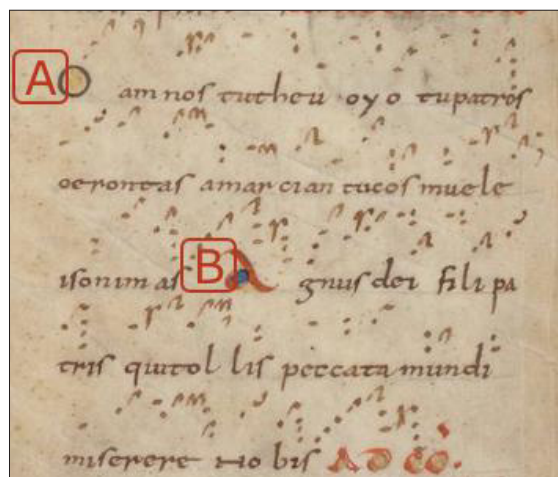 A O amnos tutheu oyo tupatros
oerontas amarcian tucosmuele
isonimas B Agnus dei fili pa
tris quitol lis peccata mundi
miserere no bis AD CŌ.